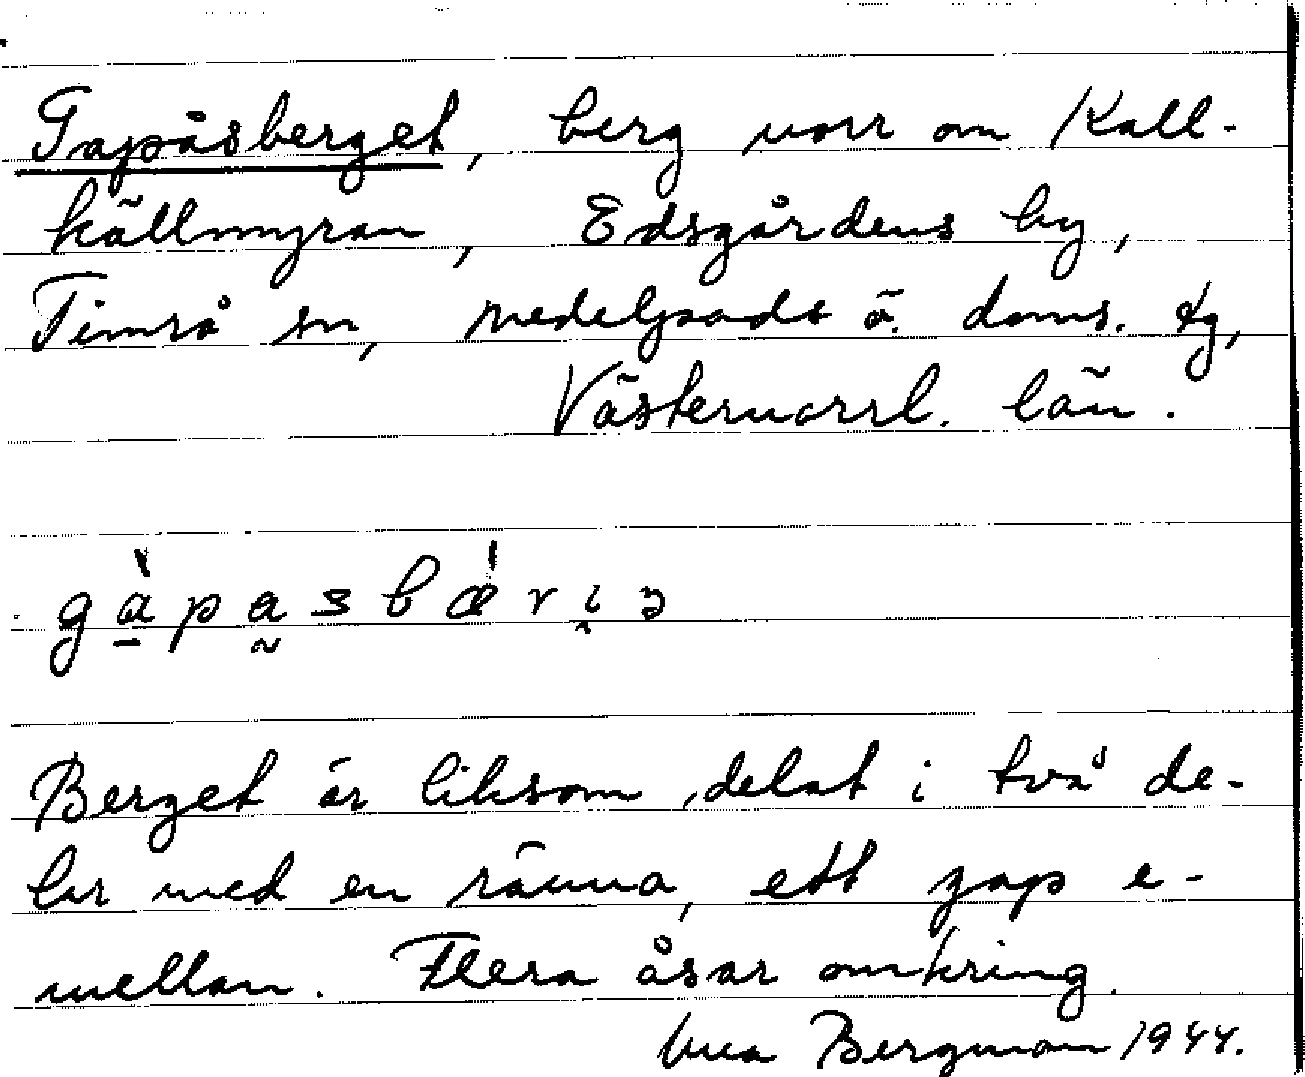 Gapåsberget, berg norr om Kall-
källmyran, Edsgårdens by,
Timrå sn, Medelpads ö. doms. tg,
Västernorrl. län.
gàpasbǽriz
Berget är liksom delat i två de-
lar med en ränna, ett gap e-
mellan. Flera åsar omkring.
Bergman 1944.